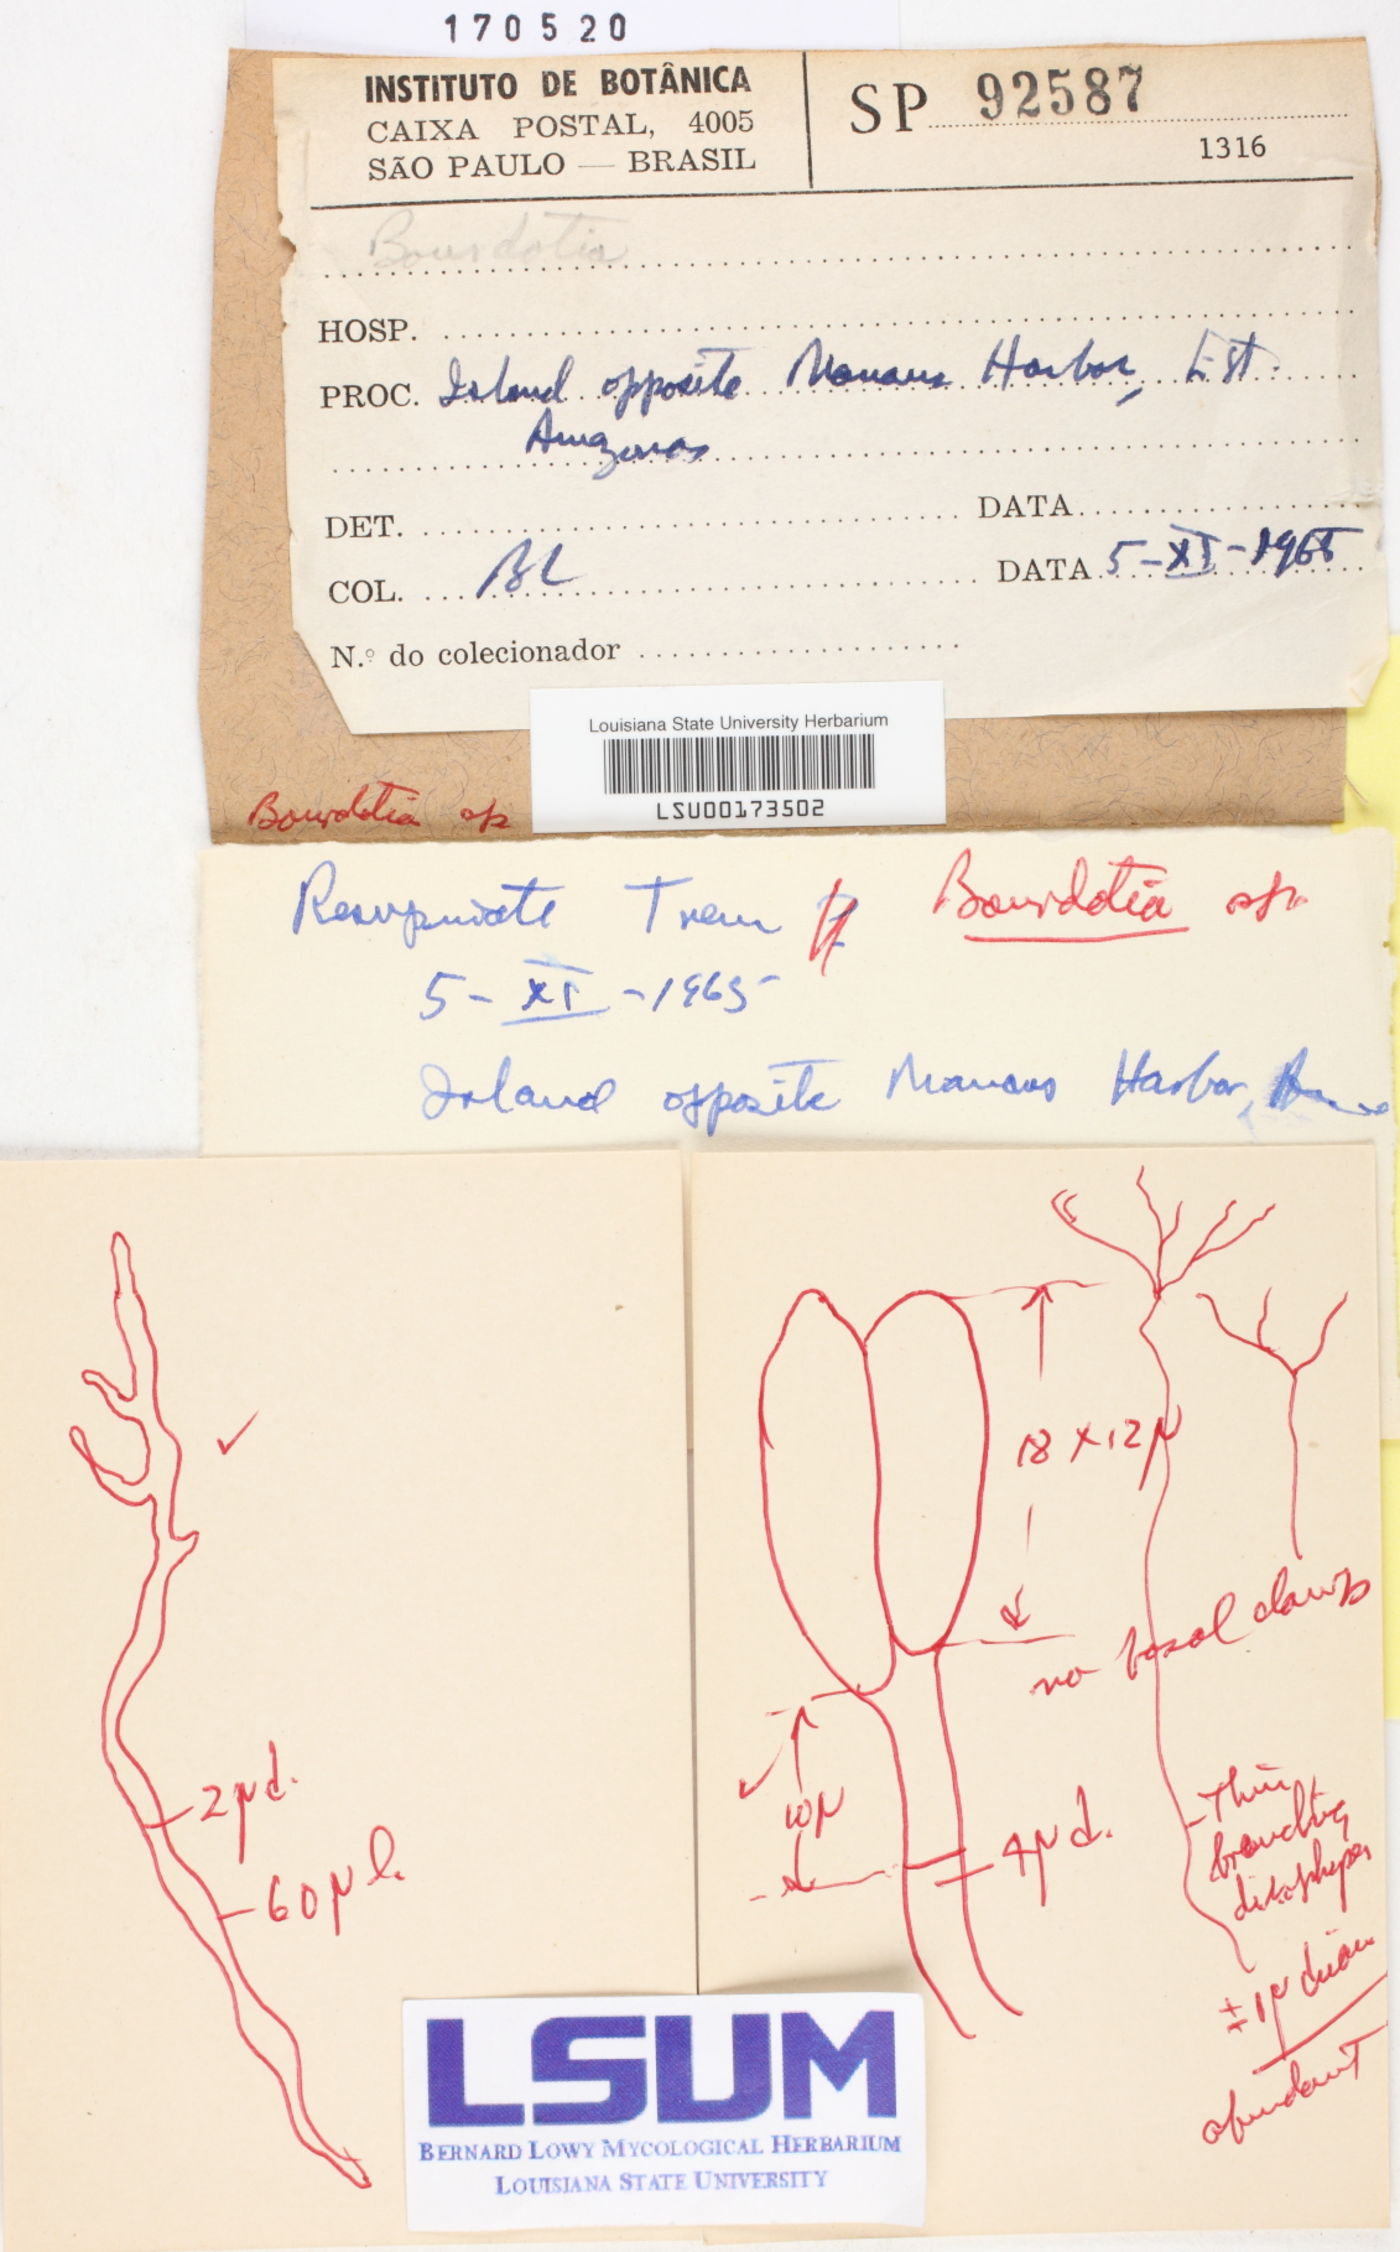 170520
INSTITUTO DE BOTÂNICA
CAIXA POSTAL, 4005
SÃO PAULO — BRASIL
SP 92587
1316
Bourdotia
HOSP.
PROC. Island opposite Manaus Harbor, Est.
Amazonas
DET. DATA
COL. BL DATA 5-XI-1965
N.º do colecionador
Louisiana State University Herbarium
LSU00173502
Bourdotia sp
Resupinate Trem Bourdotia sp.
5-XI-1965
Island opposite Manaus Harbor,
18 x 12 µ
no basal clamps
2 µ d.
60 µ l.
10 µ
4 µ d.
Thin
branching
dikaphyses
± 1 µ diam
abundant
LSUM
BERNARD LOWY MYCOLOGICAL HERBARIUM
LOUISIANA STATE UNIVERSITY